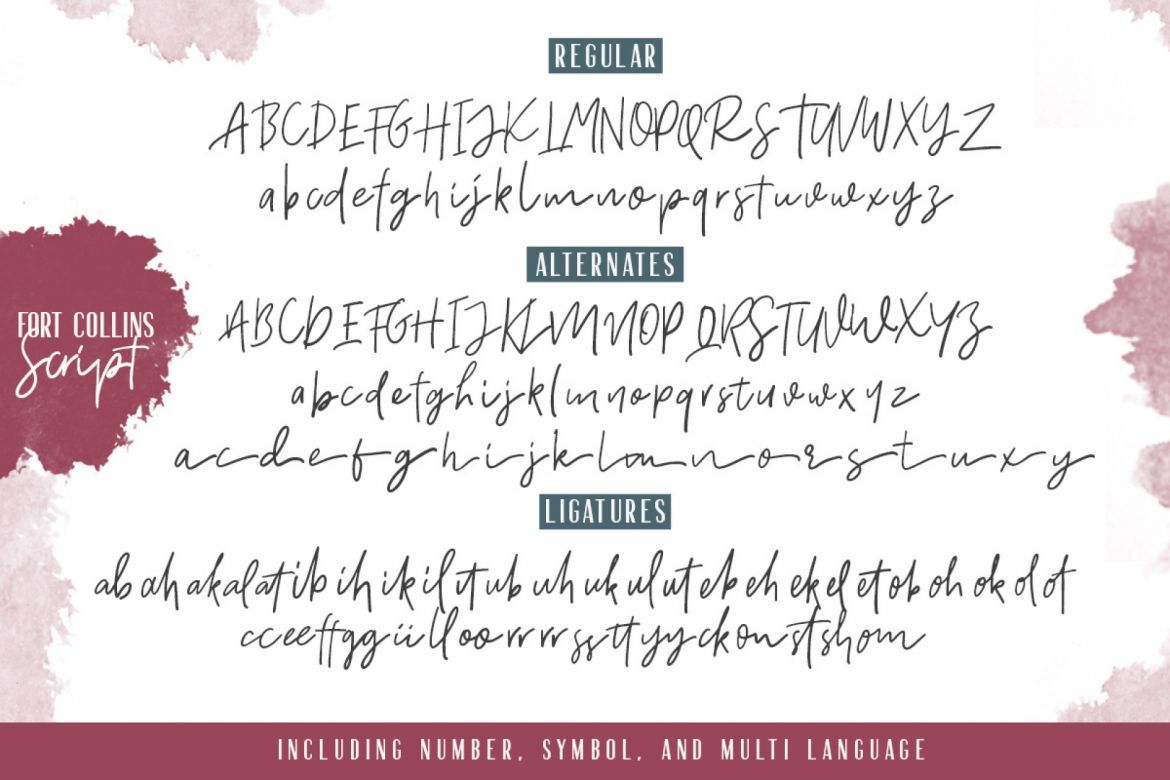 REGULAR
ABCDEFGHIJKLMNOPQRSTUVWXYZ
abcdefghijklmnopqrstuvwxyz
ALTERNATES
ABCDEFGHIJKLMNOPQRSTUVWXYZ
FORT COLLINS
Script
abcdefghijklmnopqrstuvwxyz
acdefghijklmnorstuxy
LIGATURES
abahakalatibihikilitubuhukulutebehekeletobohokolot
cceeffggiilloorrrrssttyyckonstshom
INCLUDING NUMBER, SYMBOL, AND MULTI LANGUAGE